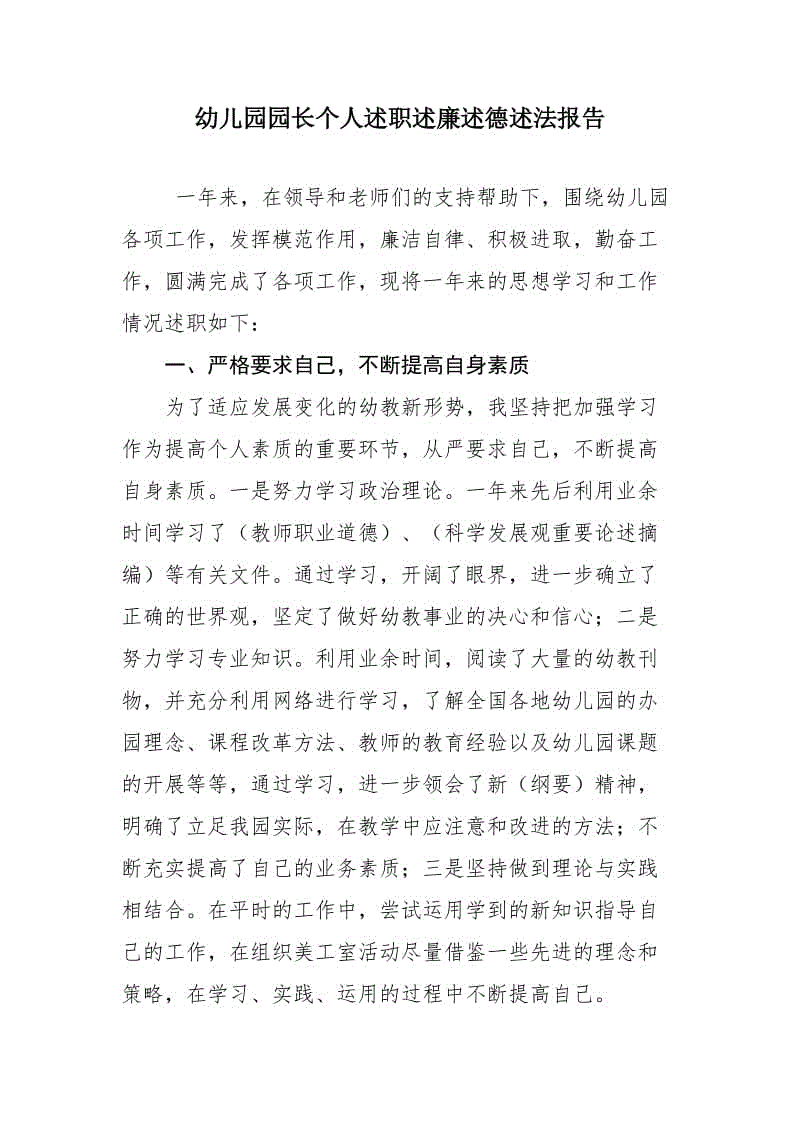 幼儿园园长个人述职述廉述德述法报告
一年来，在领导和老师们的支持帮助下，围绕幼儿园
各项工作，发挥模范作用，廉洁自律、积极进取，勤奋工
作，圆满完成了各项工作，现将一年来的思想学习和工作
情况述职如下：
一、严格要求自己，不断提高自身素质
为了适应发展变化的幼教新形势，我坚持把加强学习
作为提高个人素质的重要环节，从严要求自己，不断提高
自身素质。一是努力学习政治理论。一年来先后利用业余
时间学习了（教师职业道德）、（科学发展观重要论述摘
编）等有关文件。通过学习，开阔了眼界，进一步确立了
正确的世界观，坚定了做好幼教事业的决心和信心；二是
努力学习专业知识。利用业余时间，阅读了大量的幼教刊
物，并充分利用网络进行学习，了解全国各地幼儿园的办
园理念、课程改革方法、教师的教育经验以及幼儿园课题
的开展等等，通过学习，进一步领会了新（纲要）精神，
明确了立足我园实际，在教学中应注意和改进的方法；不
断充实提高了自己的业务素质；三是坚持做到理论与实践
相结合。在平时的工作中，尝试运用学到的新知识指导自
己的工作，在组织美工室活动尽量借鉴一些先进的理念和
策略，在学习、实践、运用的过程中不断提高自己。